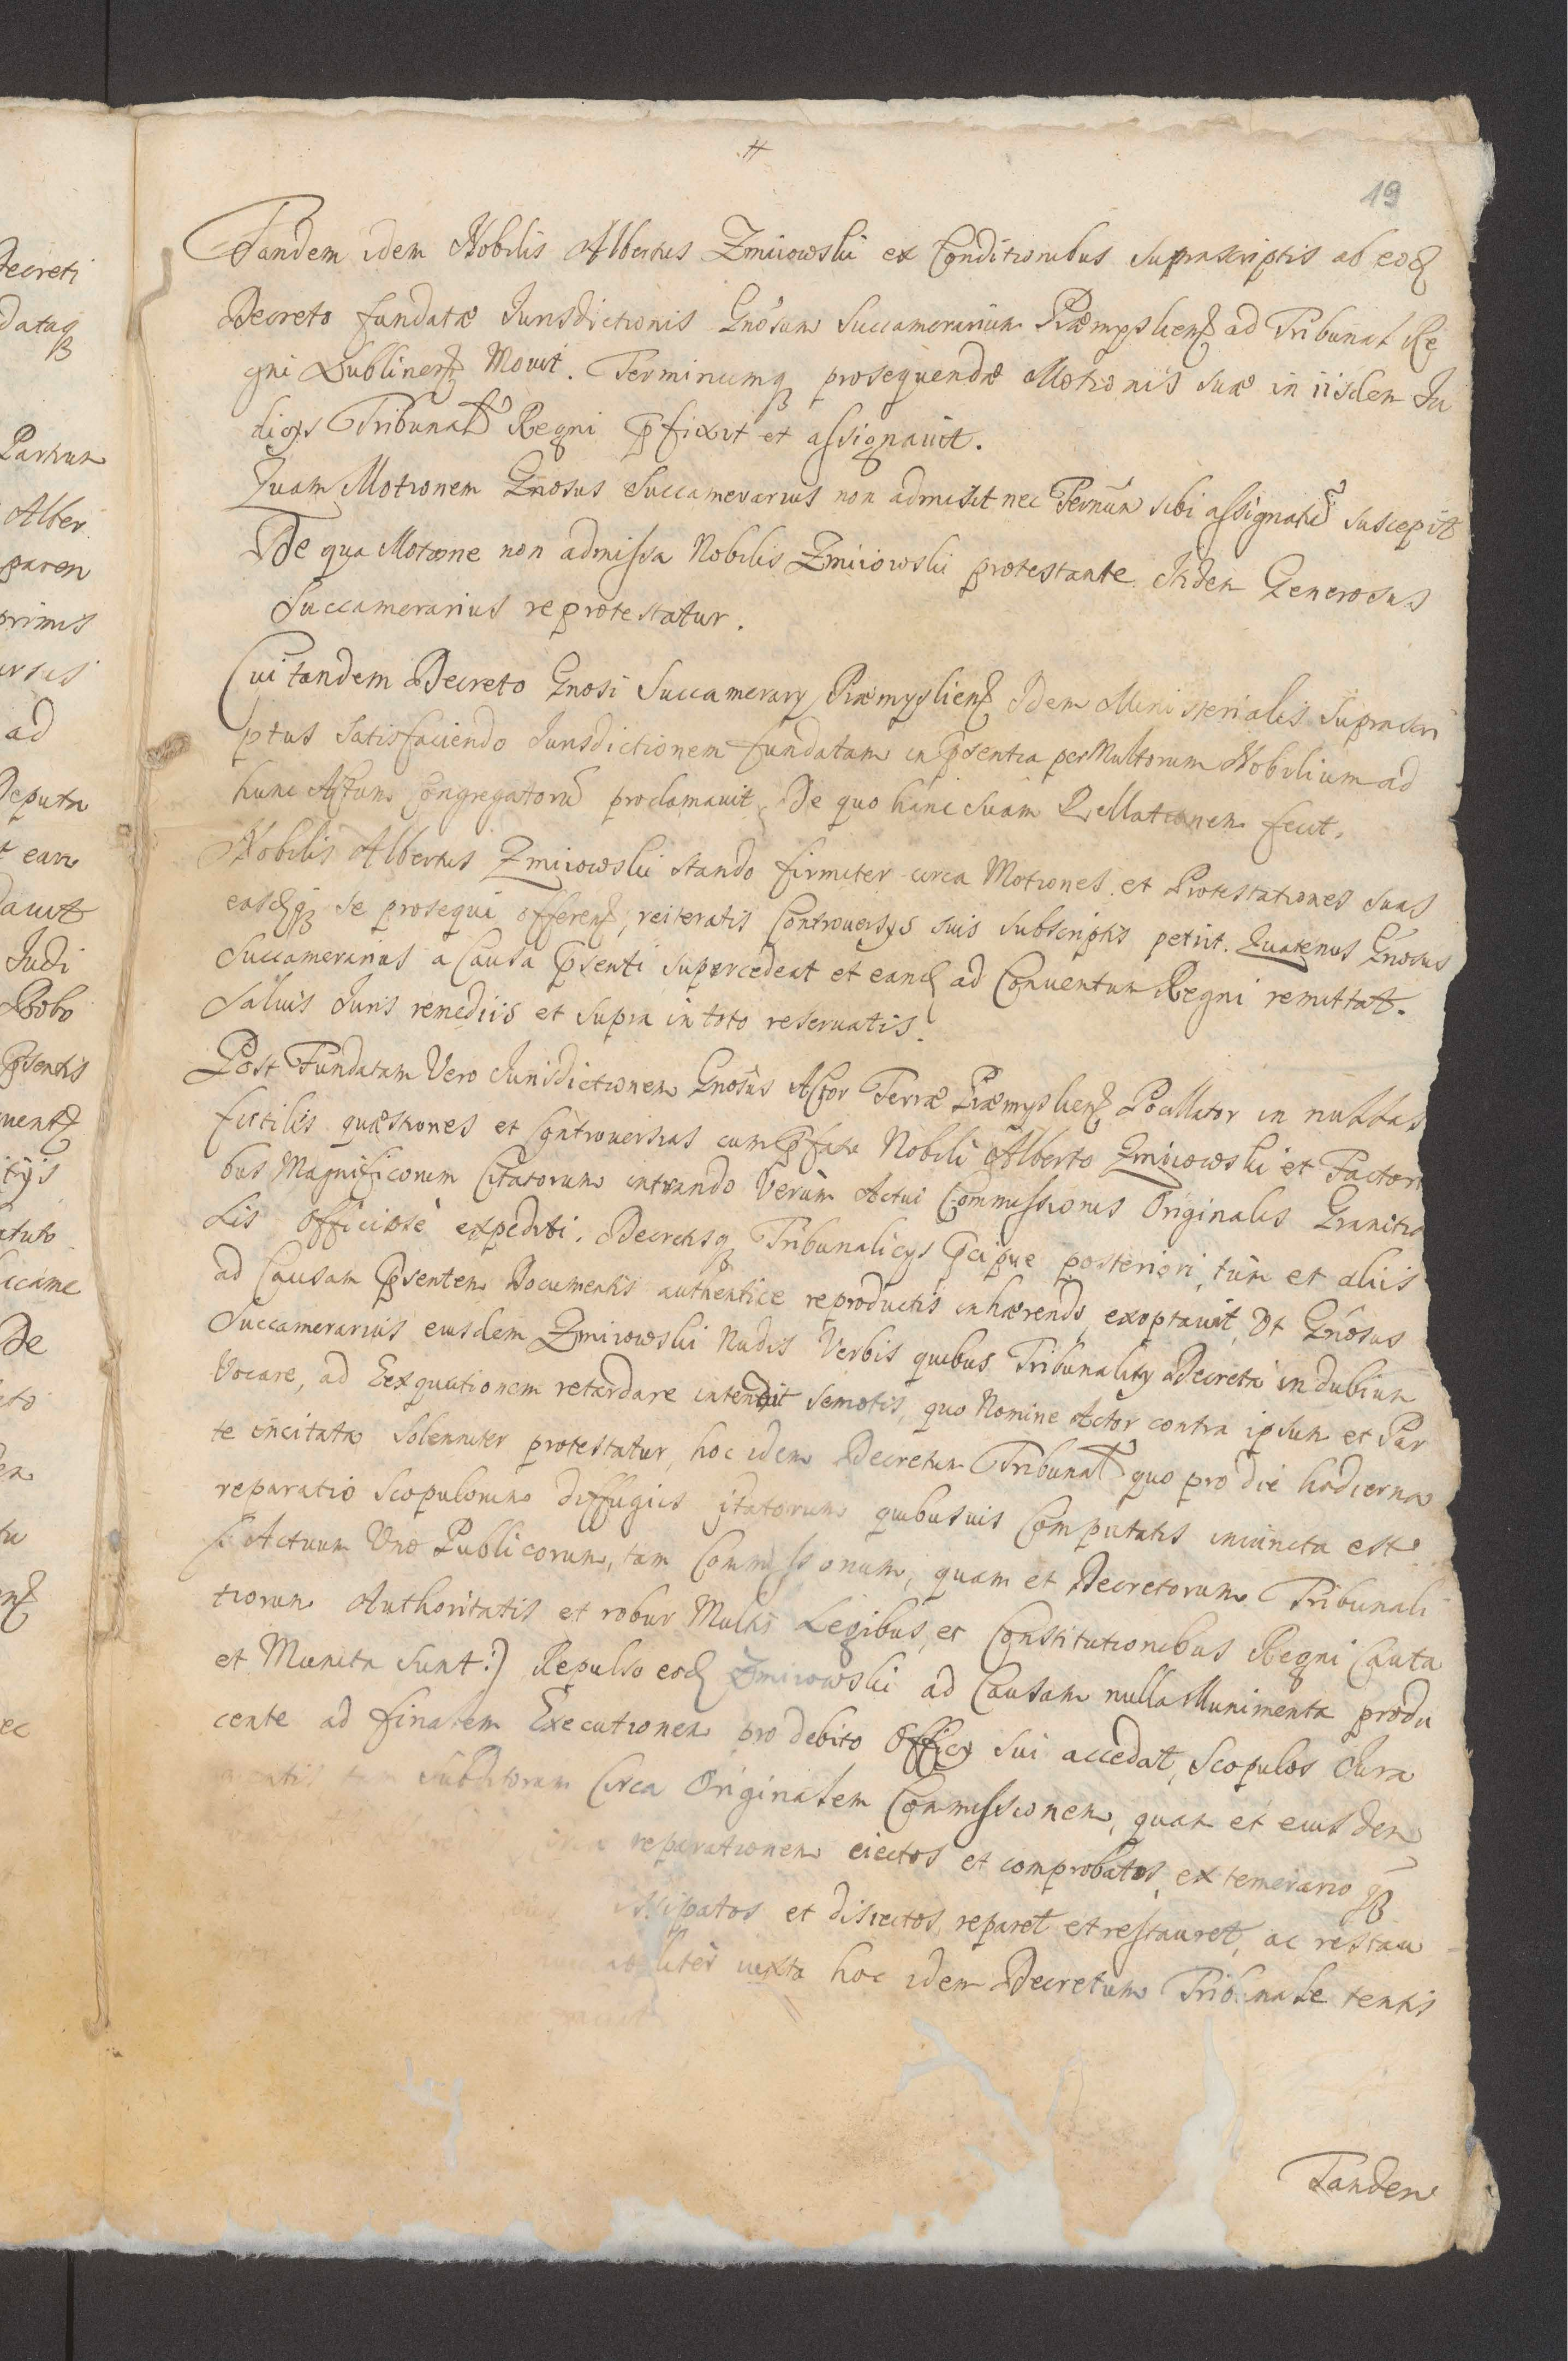 19
Tandem idem Nobilis Albertus Zmiiowski ex Conditionibus suprascriptis ab eod
Decreto fundatæ Jurisdictionis Gnosum Succamerarium Præmysliens ad Tribunal Re
gni Lublinens Movit. Terminumq prosequendæ Motionis suæ in iisdem Ju
dicys Tribunal Regni pfixit et assignavit.
Quam Motionem Gnosus Succamerarius non admisit nec Termun sibi assignatu suscepit
De qua Motione non admissa Nobilis Zmiiowski protestante Itidem Generosus
Succamerarius reprotestatur.
Cui tandem Decreto Gnosi Succamerary Præmysliens Idem Ministerialis suprascri
ptus satisfaciendo Jurisdictionem fundatam in psentia perMultorum Nobilium ad
hunc Actum Congregatoru proclamavit, De quo hanc suam Rellationem fecit.
Nobilis Albertus Zmiiowski stando firmiter circa Motiones et Protestationes suas
easdq se prosequi offerens, reiteratis Controversys suis subscriptis petiit. Quatenus Gnosus
Succamerarius a Causa psenti supercedeat et eand ad Conventum Regni remittat.
Salvis Juris remediis et supra in toto reservatis.
Post Fundatam Vero Jurisdictionem Gnosus Actor Terræ Præmysliens Pocillator in nullas
futiles quæstiones et Controversias cum pfato Nobili Alberto Zmiiowski et Factori
bus Magnificorum Citatorum intrando Verum Actui Commissionis Originalis Granitia
lis officiose expediti. Decretisq Tribunalicys pcipue posteriori, tum et aliis
ad Causam psentem Documentis authentice reproductis inhærendo, exoptavit, Ut Gnosus
Succamerarius eiusdem Zmiiowski Nudis Verbis quibus Tribunality Decreta in dubium
Vocare, ad Exequutionem retardare intendit semotis, quo Nomine Actor contra ipsum et Par
te incitata Solenniter protestatur, hoc idem Decretum Tribunal quo pro die hodierna
reparatio Scopulorum diffugiis itatorum quibusvis Computatis iniuncta est
Actuum Vno Publicorum, tam Commissionum, quam et Decretorum Tribunali
tiorum Authoritatis et robur Multis Legibus, et Constitutionibus Regni Cauta
et Munita sunt:) Repulso eod Zmiiowski ad Causam nulla Munimenta produ
cente ad finalem Executionem pro debito Officy sui accedat, Scopulos Jura
mentis tam subditorum Circa Originalem Commissionem, quam et eiusdem
circa reparationem eiectos et comprobatos, ex temerario
dissipatos et disiectos, reparet et restauret, ac restau
liter iuxta hoc idem Decretum Tribunale tentis
Tandem
Decreti
dataq
Partium
Alber
paren
primis
ad
Deputa
eam
davit
Judi
Dobo
psentis
De